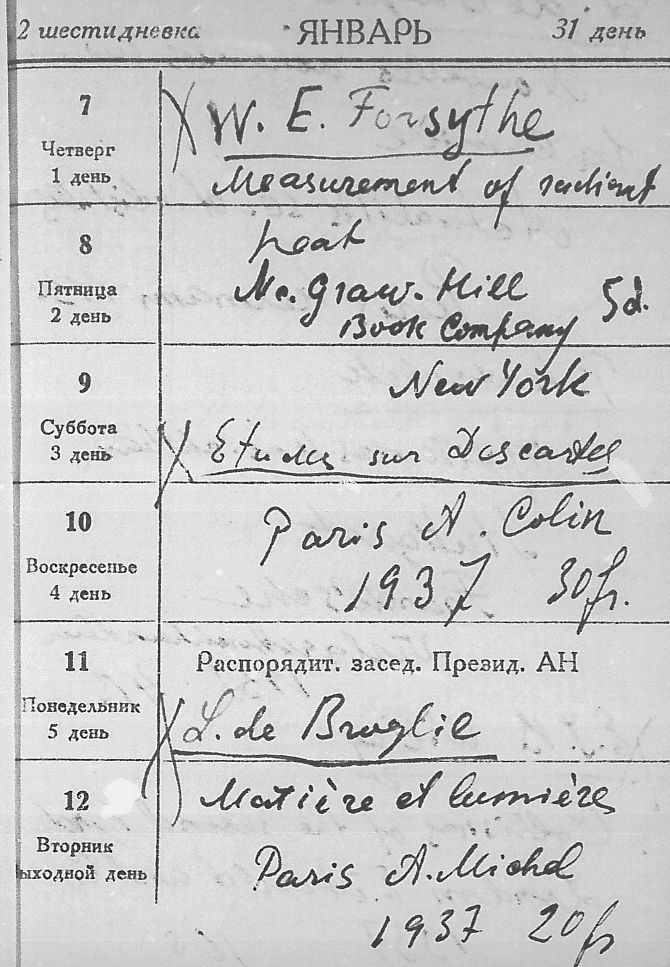 2 шестидневка ЯНВАРЬ 31 день
7
Четверг
1 день
W. E. Forsythe
Measurement of radiant
8
Пятница
2 день
heat
Mc. Graw-Hill 5d.
Book Company
9
Суббота
3 день
New York
Etudes sur Descartes
10
Воскресенье
4 день
Paris A. Colin
1937 30 fr.
11
Понедельник
5 день
Распорядит. засед. Презид. АН
L. de Broglie
12
Вторник
ыходной день
Matière et lumières
Paris A. Michel
1937 20 fr